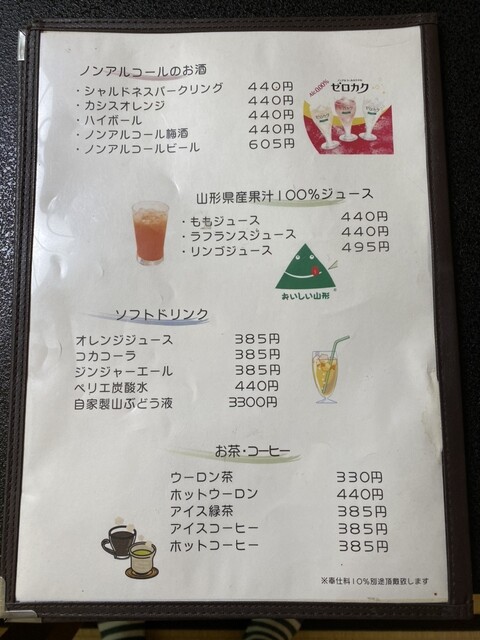 ノンアルコールのお酒
・シャルドネスパークリング 440円
・カシスオレンジ 440円
・ハイボール 440円
・ノンアルコール梅酒 440円
・ノンアルコールビール 605円
ALC.0.00%
ゼロカク
山形県産果汁100%ジュース
・ももジュース 440円
・ラフランスジュース 440円
・リンゴジュース 495円
おいしい山形
ソフトドリンク
オレンジジュース 385円
コカコーラ 385円
ジンジャーエール 385円
ペリエ炭酸水 440円
自家製山ぶどう液 3300円
お茶・コーヒー
ウーロン茶 330円
ホットウーロン 440円
アイス緑茶 385円
アイスコーヒー 385円
ホットコーヒー 385円
※奉仕料10%別途頂戴致します